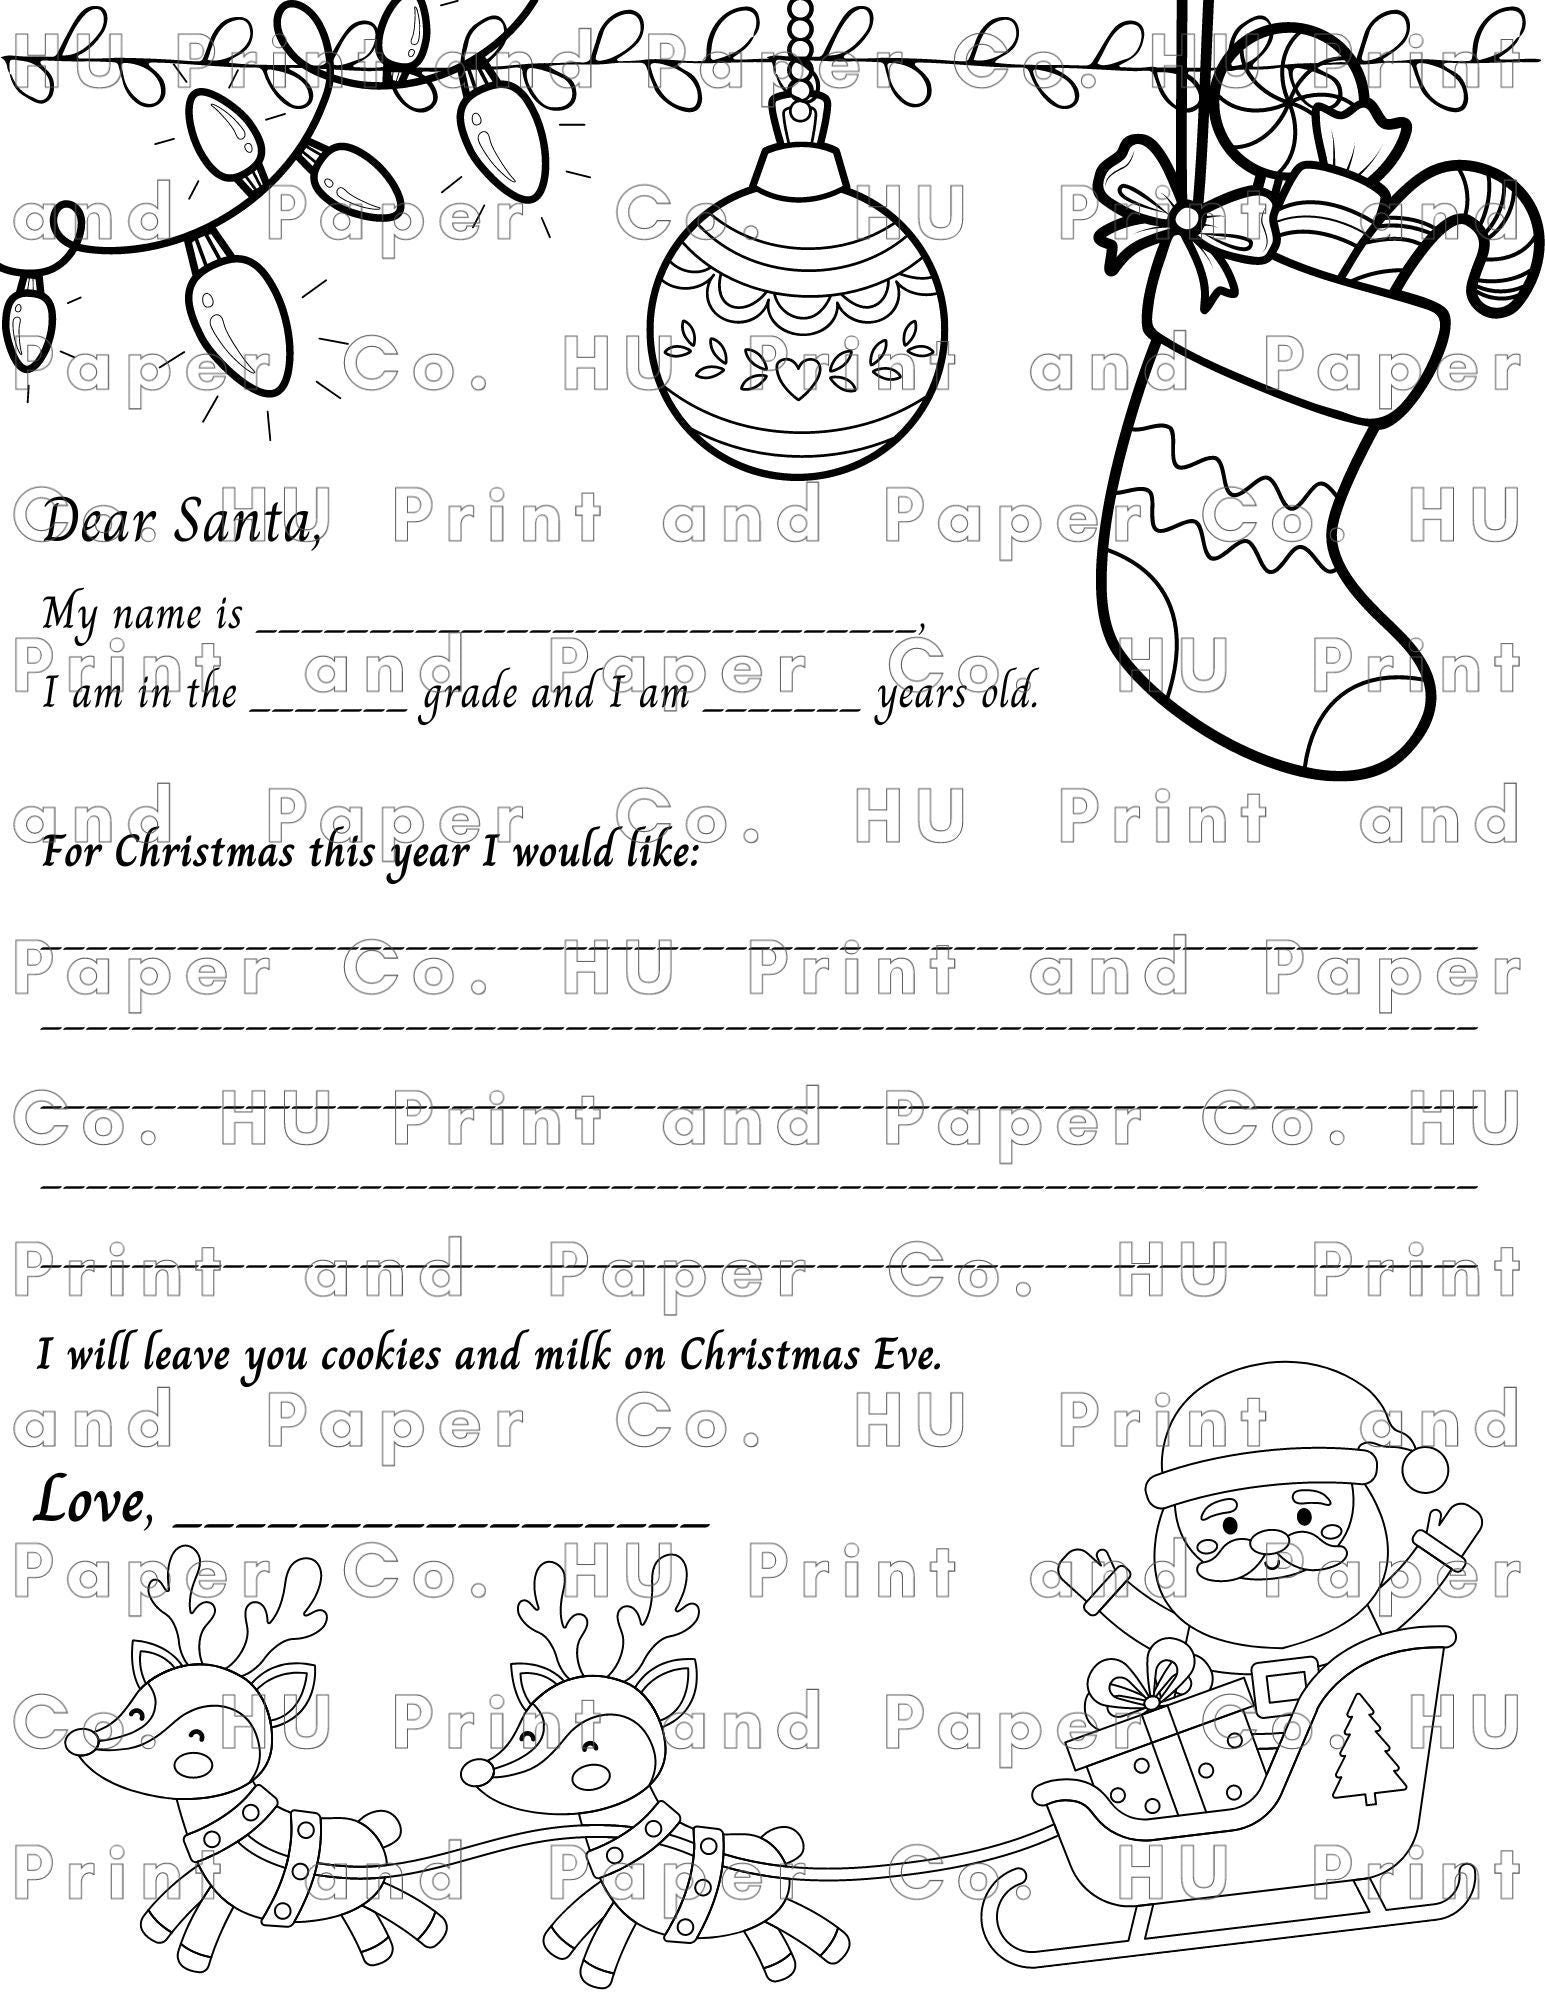 HU Print and Paper Co. HU Print
and Paper Co. HU Print and
Paper Co. HU Print and Paper
Co. HU Print and Paper Co. HU
Dear Santa,
My name is ____________________________,
Print and Paper Co. HU Print
I am in the _______ grade and I am _______ years old.
and Paper Co. HU Print and
For Christmas this year I would like:
Paper Co. HU Print and Paper
Co. HU Print and Paper Co. HU
Print and Paper Co. HU Print
I will leave you cookies and milk on Christmas Eve.
and Paper Co. HU Print and
Love, _________________
Paper Co. HU Print and Paper
Co. HU Print and Paper Co. HU
Print and Paper Co. HU Print